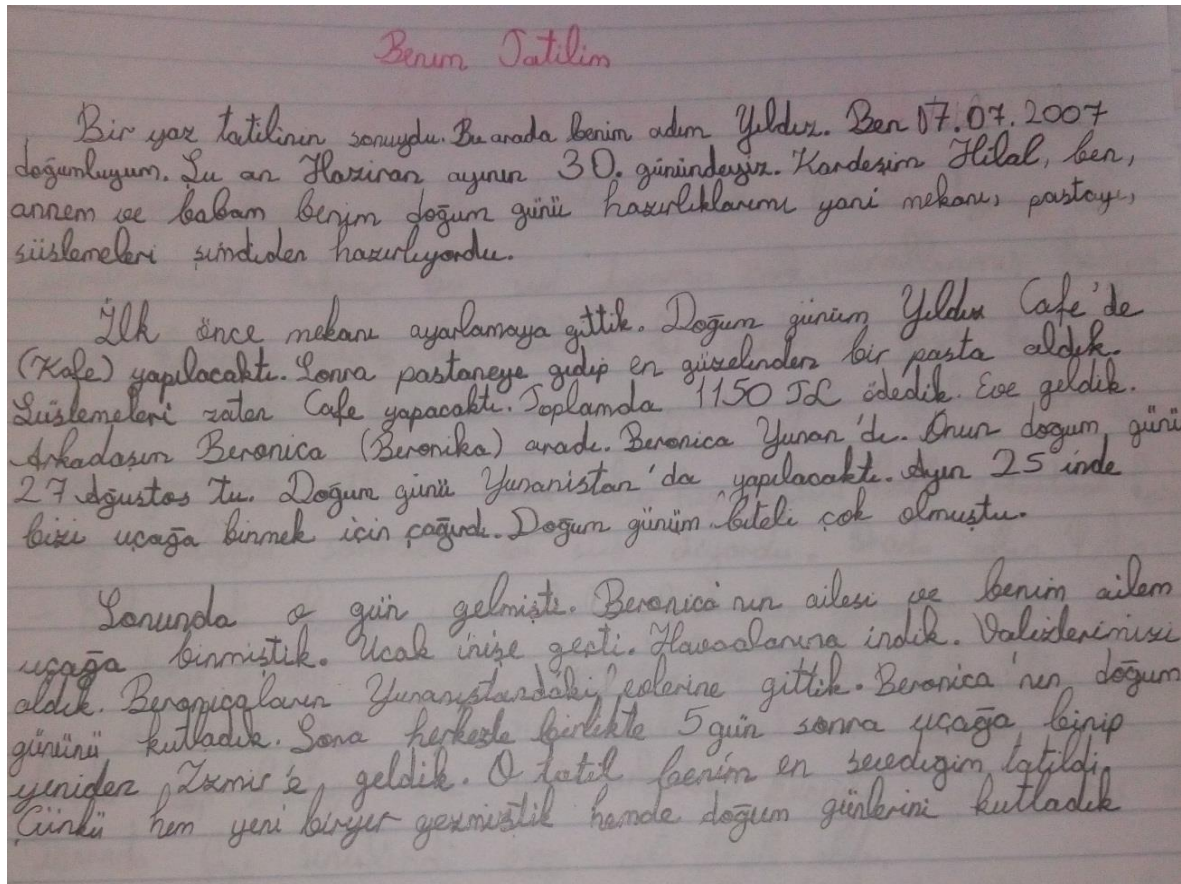 Benım Tatilim
Bir yaz tatilinin sonuydu. Bu arada benim adım Yıldız. Ben 07.07.2007
doğumluyum. Şu an Haziran ayının 30. günündeyiz. Kardeşim Hilal, ben,
annem ve babam benim doğum günü hazırlıklarımı yani mekanı, pastayı,
süslemeleri şımdıden hazırlıyordu.
İlk önce mekanı ayarlamaya gittik. Doğum günüm Yıldız Cafe'de
(Kafe) yapılacaktı. Sonra pastaneye gidip en güzelinden bir pasta aldık.
Süslemeleri zaten Cafe yapacaktı. Toplamda 1150 TL ödedik. Eve geldik.
Arkadaşım Beronica (Beronika) aradı. Beronica Yunan'dı. Onun doğum günü
27 Ağustos'tu. Doğum günü Yunanistan'da yapılacaktı. Ayın 25'inde
bizi uçağa binmek için çağırdı. Doğum günüm biteli çok olmuştu.
Sonunda o gün gelmişti. Beronica'nın ailesi ve benim ailem
uçağa binmiştik. Ucak inişe geçti. Havaalanına indik. Valizlerimizi
aldık. Beronicaların Yunanıstandaki evlerine gittik. Beronica'nın doğum
gününü kutladık. Sona herkesle birlikte 5 gün sonra uçağa binip
yeniden İzmir'e geldik. O tatil benim en sevdıgım tatildi.
Çünkü hem yeni biryer gezmiştik hemde doğum günlerini kutladık